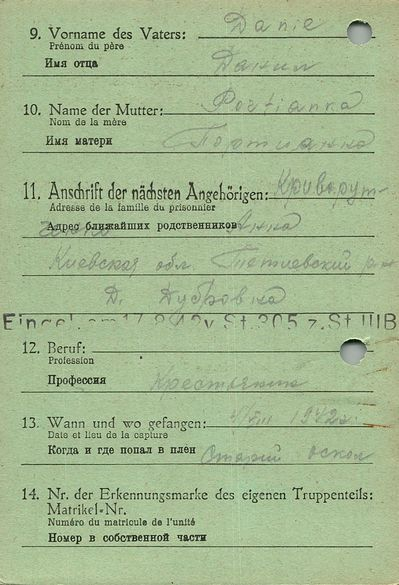 9. Vorname des Vaters: Danie
Prénom du père
Имя отца Данил
10. Name der Mutter: Portianka
Nom de la mère
Имя матери Портианка
11. Anschrift der nächsten Angehörigen: Криворут-
Adresse de la famille du prisonnier
Адрес ближайших родственников Анна
Киевская обл. Тетиевский р-н
д. Дубровка
Eingel. am 17.8.42 v. St. 305 z. St. III B
12. Beruf:
Profession
Профессия Крестьянин
13. Wann und wo gefangen: VIII 1942
Date et lieu de la capture
Когда и где попал в плен Старий Оскол
14. Nr. der Erkennungsmarke des eigenen Truppenteils:
Matrikel-Nr.
Numéro du matricule de l'unité
Номер в собственной части